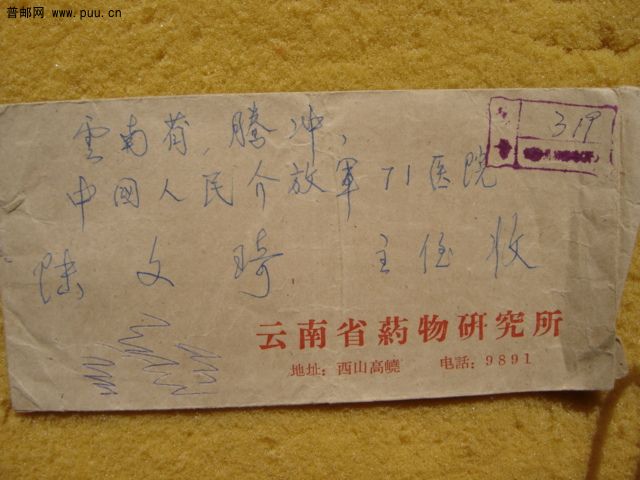 普邮网 www.puu.cn
319
雲南省，腾冲，
中國人民介放軍71医院
陆文琦 主任收
云南省药物研究所
地址：西山高蟯 电話：9891